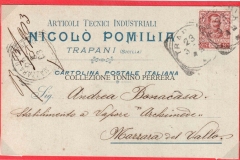 ARTICOLI TECNICI INDUSTRIALI
NICOLÒ POMILIA
TRAPANI (SICILIA)
CARTOLINA POSTALE ITALIANA
COLLEZIONE TONINO PERRERA
Sig Andrea Bonacasa
Stabilimento a Vapore "Archimede"
Mazzara del Vallo